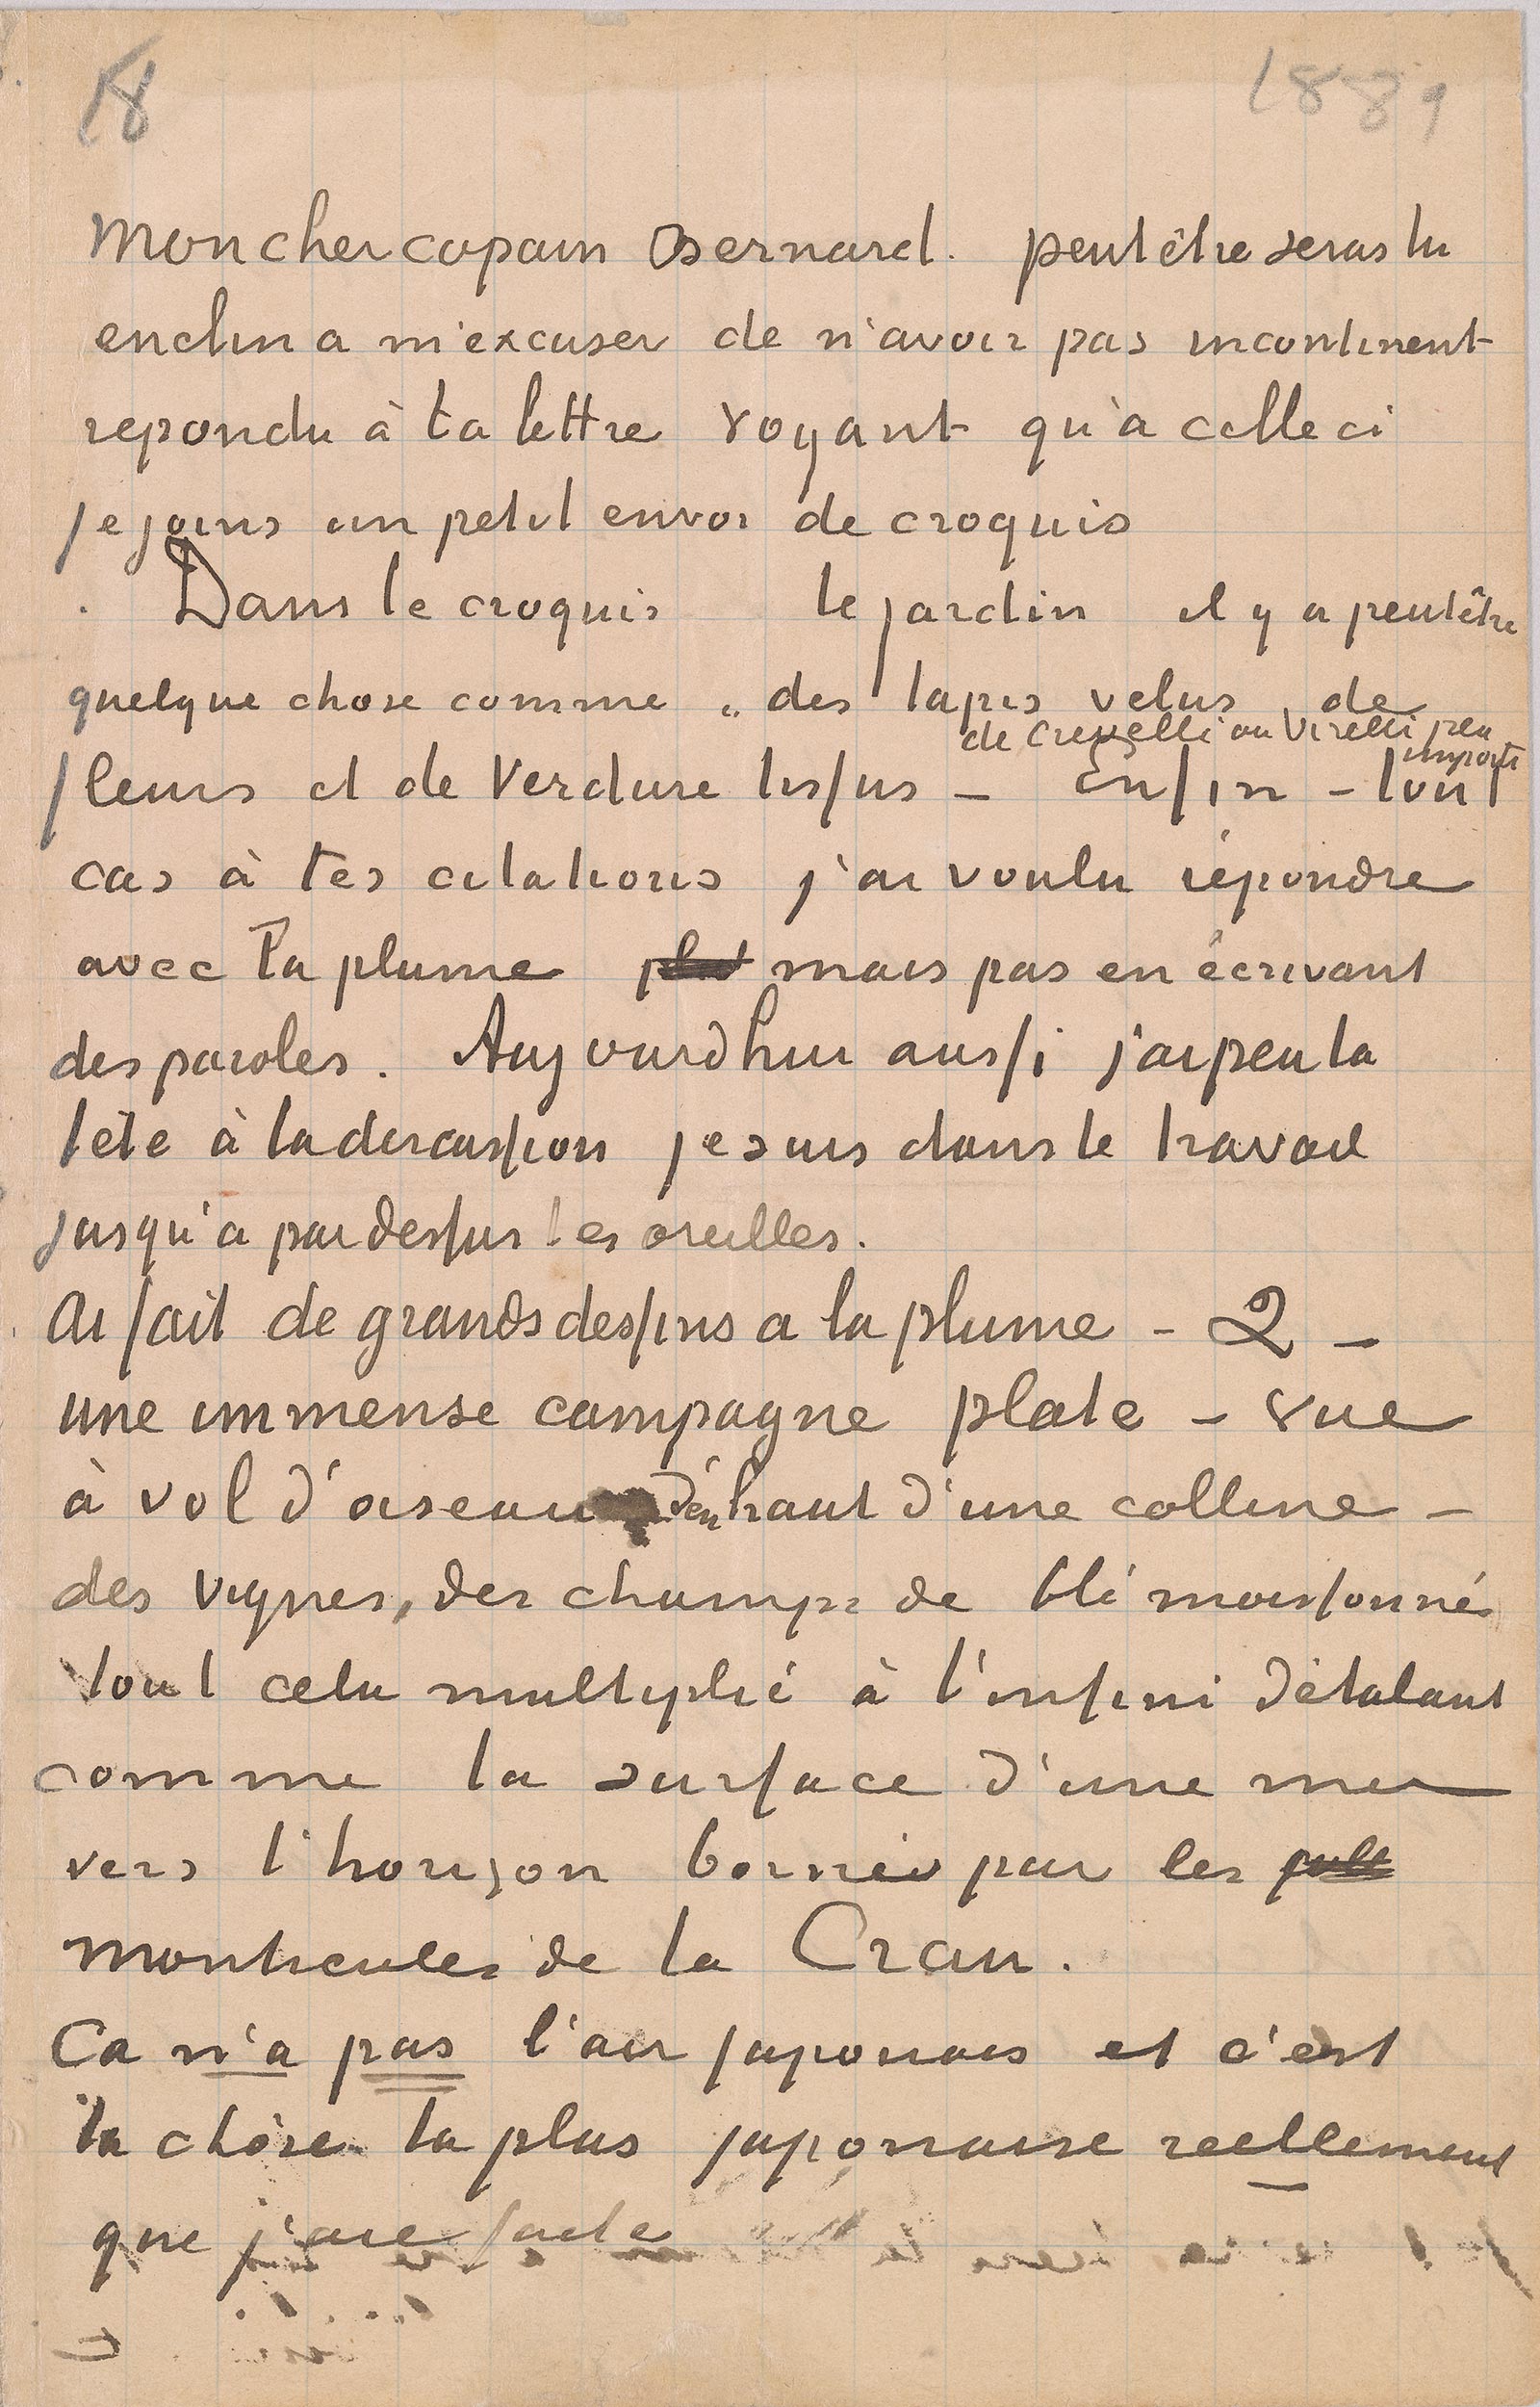 18 1889
Mon cher copain Bernard. peut être seras tu
enclin a m'excuser de n'avoir pas incontinent
repondu à ta lettre voyant qu'à celle ci
je joins un petit envoi de croquis
. Dans le croquis le jardin il y a peut être
quelque chose comme „ des tapis velus de
de Crevelli ou Virelli peu
importe
fleurs et de Verdure tissus – Enfin – tout
cas à tes citations j'ai voulu répondre
avec la plume mais pas en écrivant
des paroles. Aujourdhui aussi j'ai peu la
tête à la discussion je suis dans le travail
jusqu'à par dessus les oreilles.
Ai fait de grands dessins a la plume – 2 –
une immense campagne plate – vue
à vol d'oiseau d'en haut d'une colline –
des vignes, des champs de blé moissonnés
tout cela multiplié à l'infini s'étalant
comme la surface d'une mer
vers l'horizon bornée par les
monticules de la Crau.
Ca n'a pas l'air japonais et c'est
la chose la plus japonaise reellement
que j'aie faite